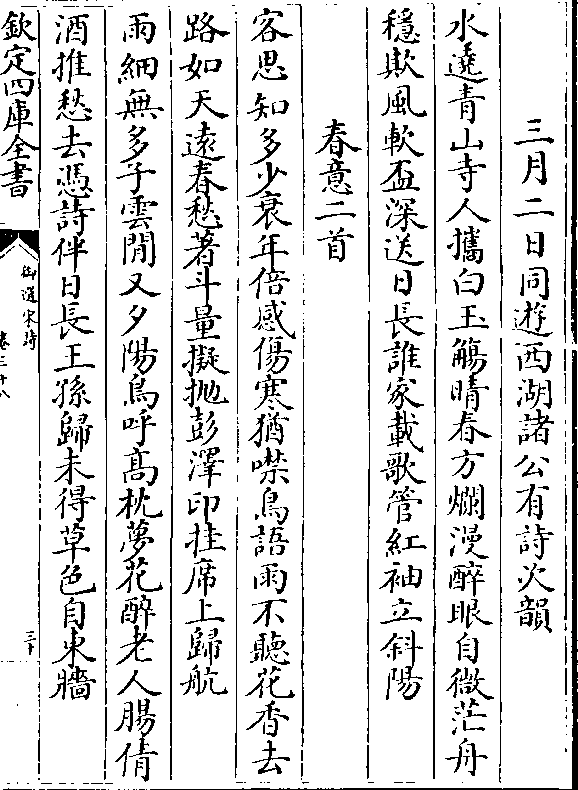 三月二日同遊西湖諸公有詩次韻
水遶青山寺人攜白玉觴晴春方爛漫醉眼自微茫舟
穩欺風軟盃深送日長誰家載歌管紅袖立斜陽
春意二首
客思知多少衰年倍感傷寒猶噤鳥語雨不聽花香去
路如天遠春愁著斗量擬抛彭澤印挂席上歸航
雨細無多子雲閒又夕陽鳥呼髙枕夢花醉老人腸倩
酒推愁去憑詩伴日長王孫歸未得草色自東牆
欽定四庫全書
御選宋詩
卷三十八
三十